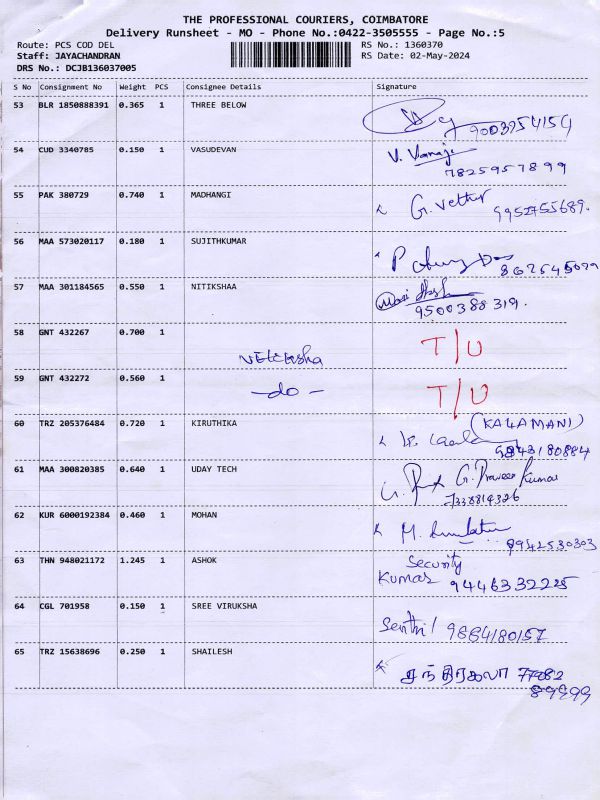 THE PROFESSIONAL COURIERS, COIMBATORE
Delivery Runsheet - MO - Phone No.:0422-3505555 - Page No.:5
Route: PCS COD DEL RS No.: 1360370
Staff: JAYACHANDRAN RS Date: 02-May-2024
DRS No.: DCJB136037005
S No Consignment No Weight PCS Consignee Details Signature
53 BLR 1850888391 0.365 1 THREE BELOW
9003954154
54 CUD 3340785 0.150 1 VASUDEVAN V. Vanaja
7825957899
55 PAK 380729 0.740 1 MADHANGI
G. Vetter 9952755689.
56 MAA 573020117 0.180 1 SUJITHKUMAR
57 MAA 301184565 0.550 1 NITIKSHAA
9500388319.
58 GNT 432267 0.700 1 T/U
59 GNT 432272 0.560 1 -do- T/U
60 TRZ 205376484 0.720 1 KIRUTHIKA (KALAMANI)
9843180884
61 MAA 300820385 0.640 1 UDAY TECH G. Praveen Kumar
7338814326
62 KUR 6000192384 0.460 1 MOHAN
M. 9942530303
63 THN 948021172 1.245 1 ASHOK Security
Kumar 9446332225
64 CGL 701958 0.150 1 SREE VIRUKSHA
Senthil 9884180157
65 TRZ 15638696 0.250 1 SHAILESH
சந்திரகலா 77082
89999